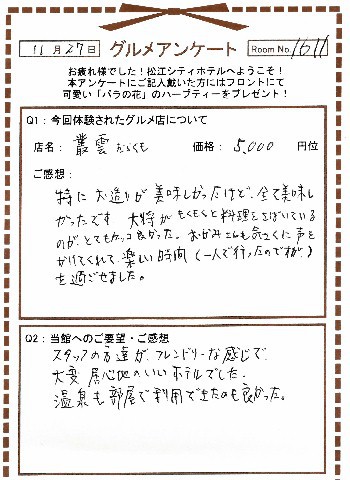 11月27日 グルメアンケート Room No. 1611
お疲れ様でした！松江シティホテルへようこそ！
本アンケートにご記入戴いた方にはフロントにて
可愛い「バラの花」のハーブティーをプレゼント！
Q1：今回体験されたグルメ店について
店名： 叢雲 むらくも 価格： 5,000 円位
ご感想：
特にお造りが美味しかったけど、全て美味し
かったです。大将がもくもくと料理をさばいている
のが、とてもカッコ良かった。おかみさんも気さくに声を
かけてくれて、楽しい時間（一人で行ったのですが）
を過ごせました。
Q2：当館へのご要望・ご感想
スタッフの方達が、フレンドリーな感じで、
大変居心地のいいホテルでした。
温泉も部屋で利用できたのも良かった。